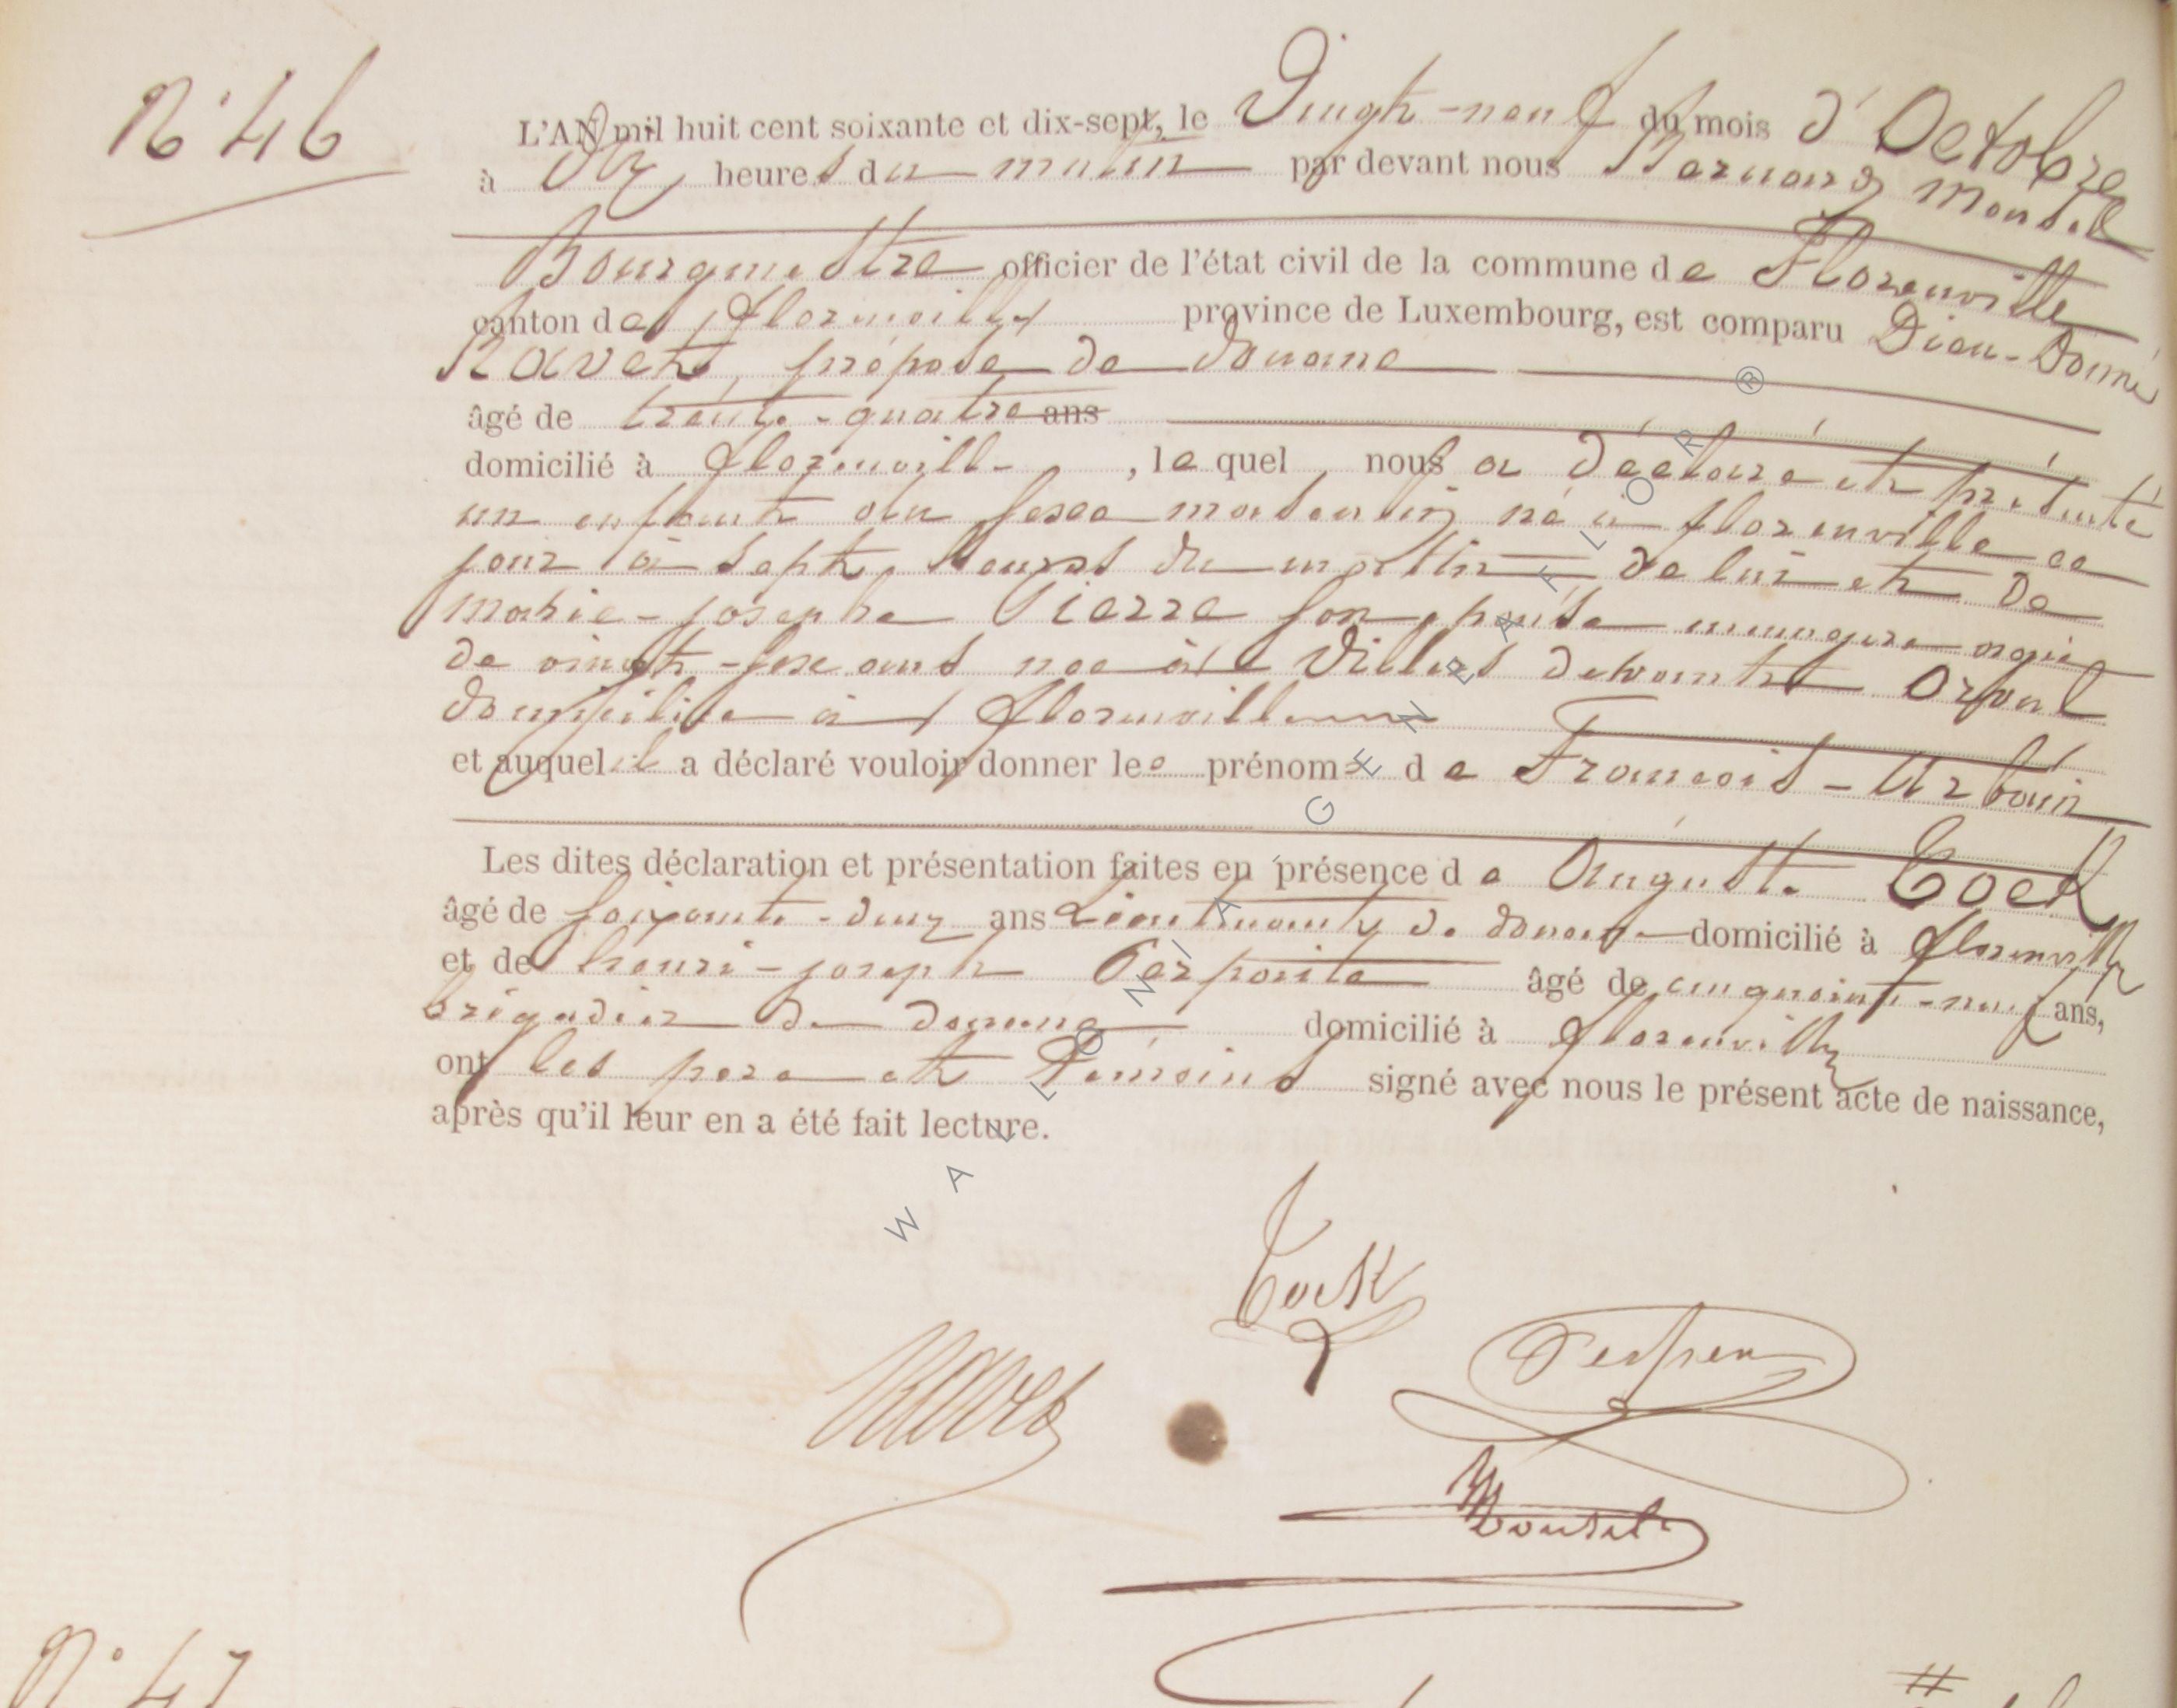 N° 46
L'AN mil huit cent soixante et dix-sept, le Vingt-neuf du mois d'Octobre
à dix heures du matin par devant nous Bernard Monsel
Bourgmestre officier de l'état civil de la commune de Florenville
canton de florenville province de Luxembourg, est comparu Dieu-Donné
Ravet, préposé de douane
âgé de trente-quatre ans
domicilié à florenville, le quel nous a déclaré et présenté
un enfant du sexe masculin né à florenville ce
jour à sept heures du matin de lui et de
marie-josephe Pierre son épouse menagere agée
de vingt-six ans née à Villers devant Orval
domiciliée à florenville
et auquel il a déclaré vouloir donner les prénoms de François-Urbain
Les dites déclaration et présentation faites en présence de Auguste Tock
âgé de soixante-deux ans Lieutenant de douane domicilié à florenville
et de henri-joseph âgé de cinquante-neuf ans,
brigadier de douane domicilié à florenville
ont les pere et Temoins signé avec nous le présent acte de naissance,
après qu'il leur en a été fait lecture.
Tock
Ravet
Monsel
N° 47
WALLONIA GENERA FLOR ®